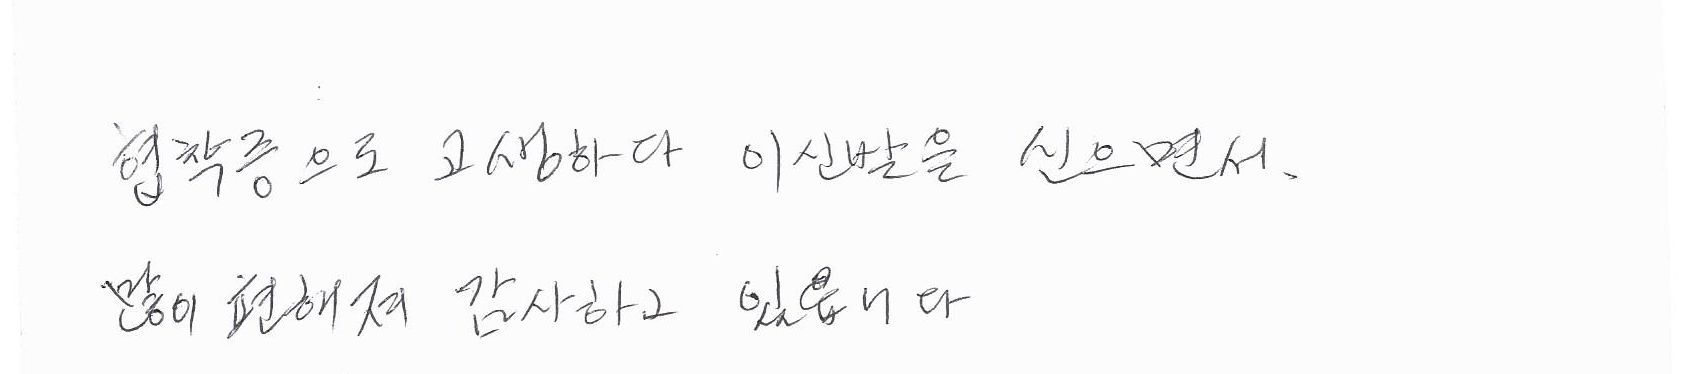 협착증으로 고생하다 이신발을 신으면서.
많이 편해져 감사하고 있읍니다